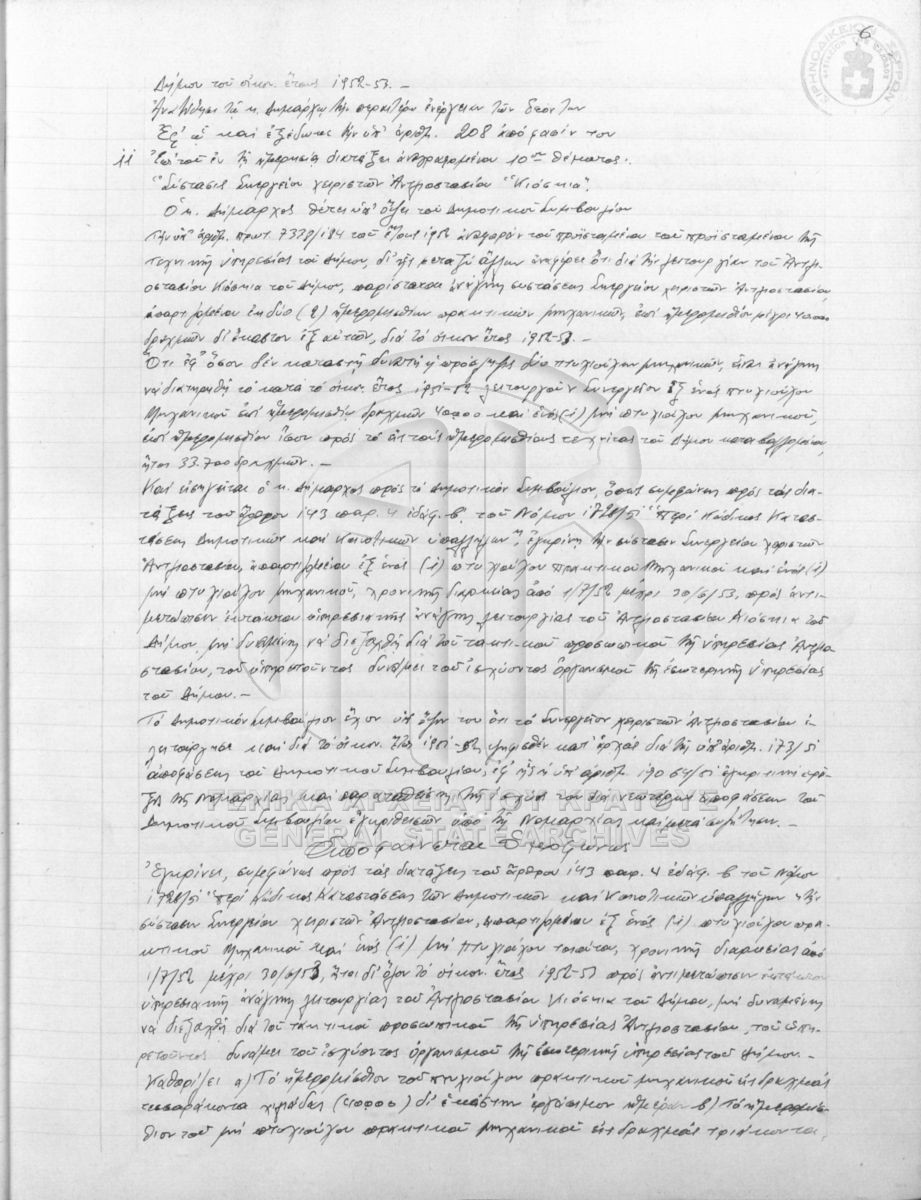 6
Δήμου τοῦ οἰκον. ἔτους 1952-53.-
Ἀναθέτει τῷ κ. Δημάρχῳ τὴν περαιτέρω ἐνέργειαν τῶν δεόντων
Ἐφ' ᾧ καὶ ἐξεδόθη ἡ ὑπ' ἀριθμ. 208 ἀπόφασίν του
11 Ἐπὶ τοῦ ἐν τῇ ἡμερησίᾳ διατάξει ἀναγραφομένου 10ου θέματος.
"Σύστασις Συνεργείου χειριστῶν Ἀντλιοστασίου "Κιόσκια".
Ὁ κ. Δήμαρχος θέτει ὑπ' ὄψει τοῦ Δημοτικοῦ Συμβουλίου
τὴν ὑπ' ἀριθμ. πρωτ. 7338/184 τοῦ ἔτους 1952 ἀναφορὰν τοῦ προϊσταμένου τοῦ προϊσταμένου τῆς
τεχνικῆς ὑπηρεσίας τοῦ Δήμου, δι' ἧς μεταξὺ ἄλλων ἀναφέρει ὅτι διὰ τὴν λειτουργίαν τοῦ Ἀντλι-
οστασίου Κιόσκια τοῦ Δήμου, παρίσταται ἀνάγκη συστάσεως Συνεργείου χειριστῶν Ἀντλιοστασίου,
ἀπαρτιζομένου ἐκ δύο (2) ἡμερομισθίων πρακτικῶν μηχανικῶν, ἐπὶ ἡμερομισθίῳ μέχρι 40000
δραχμῶν δι' ἕκαστον ἐξ αὐτῶν, διὰ τὸ οἰκον. ἔτος 1952-53.-
Ὅτι ἐφ' ὅσον δὲν καταστῇ δυνατὴ ἡ πρόσληψις δύο πτυχιούχων μηχανικῶν, εἶναι ἀνάγκη
νὰ διατηρηθῇ τὸ κατὰ τὸ οἰκον. ἔτος 1951-52 λειτουργοῦν Συνεργεῖον ἐξ ἑνὸς πτυχιούχου
Μηχανικοῦ ἐπὶ ἡμερομισθίῳ δραχμῶν 40000 καὶ ἑνὸς (1) μὴ πτυχιούχου μηχανικοῦ,
ἐπὶ ἡμερομισθίου ἴσου πρὸς τὸ εἰς τοὺς ἡμερομισθίους τεχνίτας τοῦ Δήμου καταβαλλομένου,
ἤτοι 33.700 δραχμῶν.-
Καὶ εἰσηγεῖται ὁ κ. Δήμαρχος πρὸς τὸ Δημοτικὸν Συμβούλιον, ὅπως συμφώνως πρὸς τὰς δια-
τάξεις τοῦ ἄρθρου 143 παρ. 4 ἐδάφ. β. τοῦ Νόμου 1728/51 "περὶ Κώδικος Κατασ-
τάσεως Δημοτικῶν καὶ Κοινοτικῶν ὑπαλλήλων", ἐγκρίνῃ τὴν σύστασιν Συνεργείου χειριστῶν
Ἀντλιοστασίου, ἀπαρτιζομένου ἐξ ἑνὸς (1) πτυχιούχου πρακτικοῦ Μηχανικοῦ καὶ ἑνὸς (1)
μὴ πτυχιούχου μηχανικοῦ, χρονικῆς διαρκείας ἀπὸ 1/7/52 μέχρι 30/6/53, πρὸς ἀντι-
μετώπισιν ἐκτάκτου ὑπηρεσιακῆς ἀνάγκης λειτουργίας τοῦ Ἀντλιοστασίου Κιόσκια τοῦ
Δήμου, μὴ δυναμένης νὰ διεξαχθῇ διὰ τοῦ τακτικοῦ προσωπικοῦ τῆς ὑπηρεσίας Ἀντλιο-
στασίου, τοῦ ὑπηρετοῦντος δυνάμει τοῦ ἰσχύοντος ὀργανισμοῦ τῆς ἐσωτερικῆς ὑπηρεσίας
τοῦ Δήμου.-
Τὸ Δημοτικὸν Συμβούλιον ἔχον ὑπ' ὄψιν του ὅτι τὸ Συνεργεῖον χειριστῶν Ἀντλιοστασίου ἐ-
λειτούργησε καὶ διὰ τὸ οἰκον. ἔτος 1951-52, ψηφισθὲν κατ' ἀρχὰς διὰ τῆς ὑπ' ἀριθμ. 173/51
ἀποφάσεως τοῦ Δημοτικοῦ Συμβουλίου, ἐφ' ἧς ἡ ὑπ' ἀριθμ. 19064/51 ἐγκριτικὴ πρᾶ-
ξις τῆς Νομαρχίας καὶ παραταθείσης τῆς ἰσχύος του διὰ νεωτέρων ἀποφάσεων τοῦ
Δημοτικοῦ Συμβουλίου ἐγκριθεισῶν ὑπὸ τῆς Νομαρχίας καὶ μετὰ συζήτησιν.-
Ἀποφαίνεται Ὁμοφώνως
Ἐγκρίνει, συμφώνως πρὸς τὰς διατάξεις τοῦ ἄρθρου 143 παρ. 4 ἐδάφ. β τοῦ Νόμου
1728/51 "περὶ Κώδικος Καταστάσεως τῶν Δημοτικῶν καὶ Κοινοτικῶν ὑπαλλήλων" τὴν
σύστασιν Συνεργείου χειριστῶν Ἀντλιοστασίου, ἀπαρτιζομένου ἐξ ἑνὸς (1) πτυχιούχου πρα-
κτικοῦ Μηχανικοῦ καὶ ἑνὸς (1) μὴ πτυχιούχου τοιούτου, χρονικῆς διαρκείας ἀπὸ
1/7/52 μέχρι 30/6/53, ἤτοι δι' ὅλον τὸ οἰκον. ἔτος 1952-53 πρὸς ἀντιμετώπισιν ἐκτάκτου
ὑπηρεσιακῆς ἀνάγκης λειτουργίας τοῦ Ἀντλιοστασίου Κιόσκια τοῦ Δήμου, μὴ δυναμένης
νὰ διεξαχθῇ διὰ τοῦ τακτικοῦ προσωπικοῦ τῆς ὑπηρεσίας Ἀντλιοστασίου, τοῦ ὑπη-
ρετοῦντος δυνάμει τοῦ ἰσχύοντος ὀργανισμοῦ τῆς ἐσωτερικῆς ὑπηρεσίας τοῦ Δήμου.-
Καθορίζει α) Τὸ ἡμερομίσθιον τοῦ πτυχιούχου πρακτικοῦ μηχανικοῦ εἰς δραχμὰς
τεσσαράκοντα χιλιάδας (40000) δι' ἑκάστην ἐργάσιμον ἡμέραν β) Τὸ ἡμερομίσ-
θιον τοῦ μὴ πτυχιούχου πρακτικοῦ μηχανικοῦ εἰς δραχμὰς τριάκοντα
ΓΕΝΙΚΑ ΑΡΧΕΙΑ ΤΟΥ ΚΡΑΤΟΥΣ
GENERAL STATE ARCHIVES